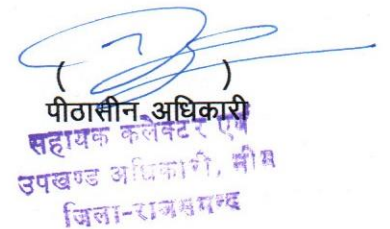 ( )
पीठासीन अधिकारी
सहायक कलेक्टर एवं
उपखण्ड अधिकारी, भीम
जिला-राजसमन्द